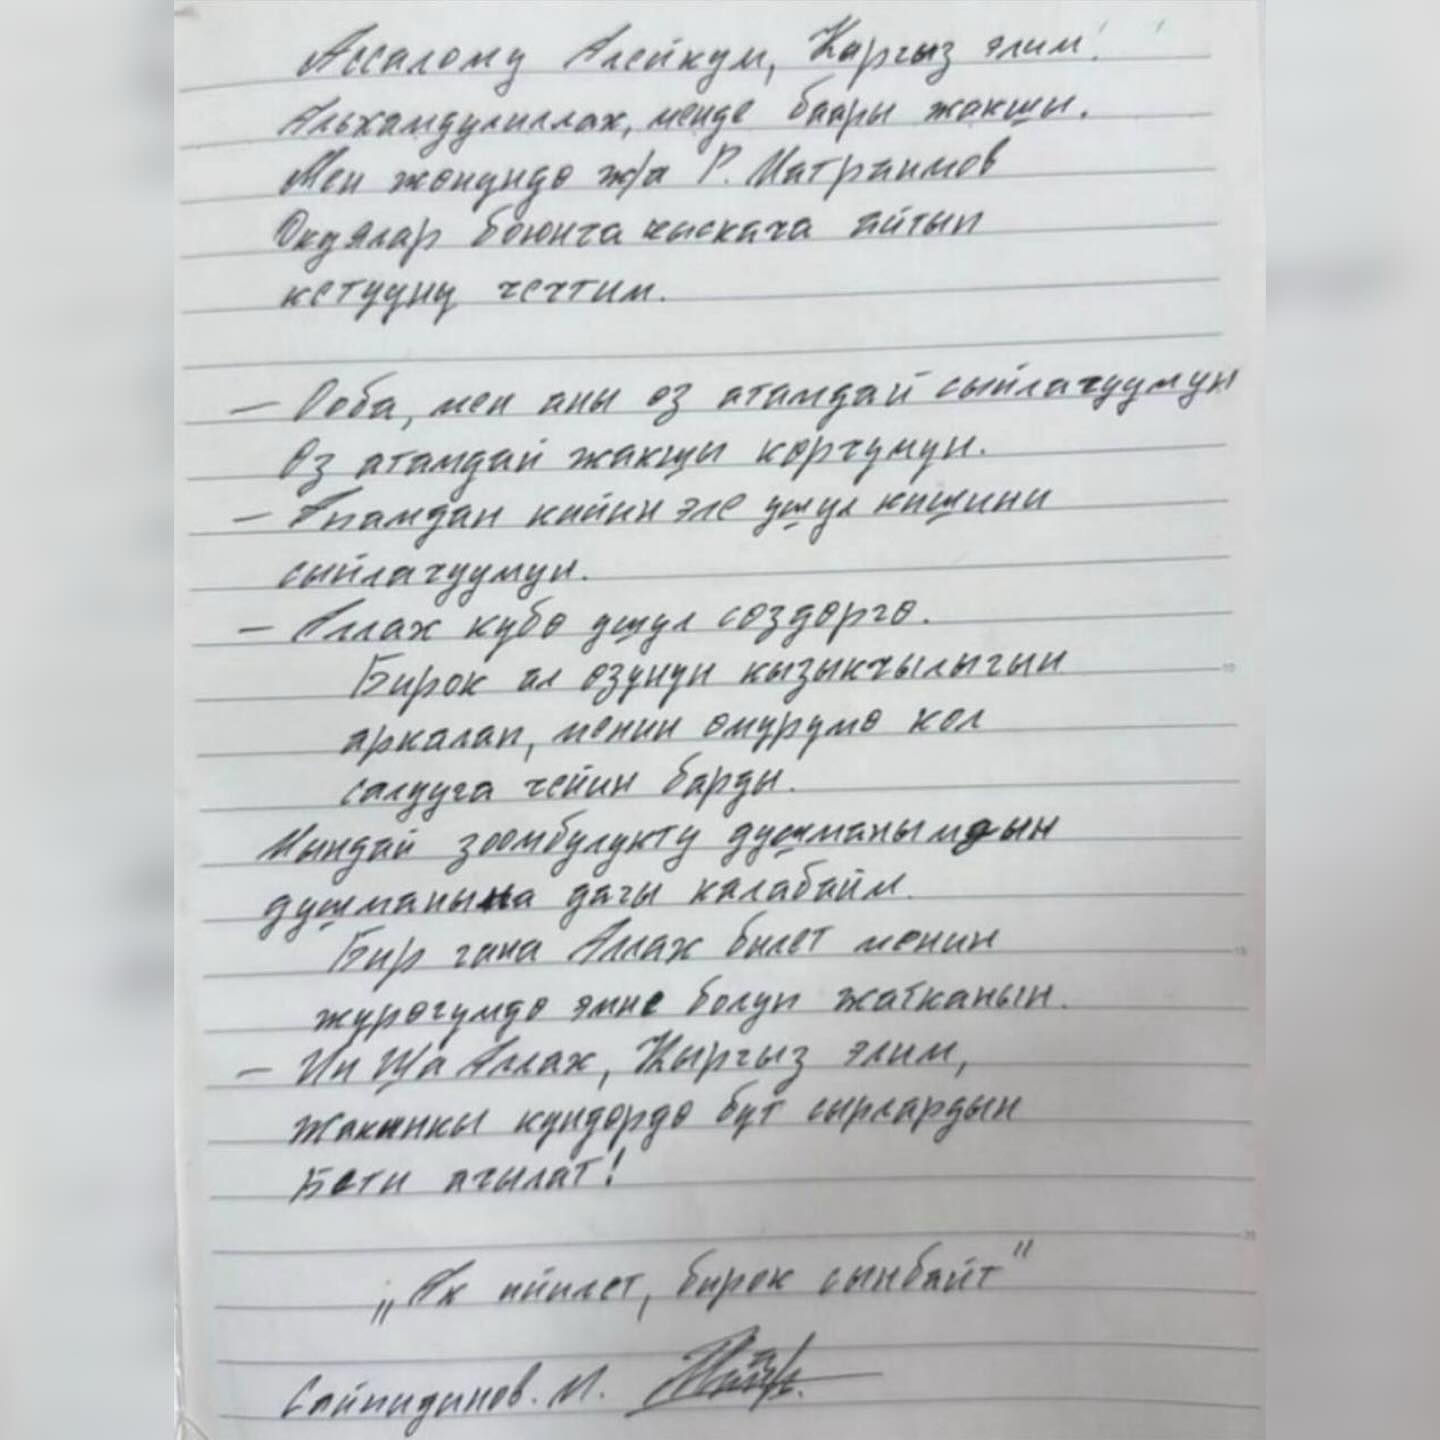 Ассалому Алейкум, Кыргыз элим!
Альхамдулиллах, менде баары жакшы.
Мен жөнүндө ж/а Р. Матраимов
Окуялар боюнча кыскача айтып
кетууну чечтим.
— Ооба, мен аны өз атамдай сыйлачуумун
Өз атамдай жакшы көрчүмүн.
— Апамдан кийин эле ушул кишини
сыйлачуумун.
— Аллах күбө ушул сөздөргө.
Бирок ал өзүнүн кызыкчылыгын
аркалап, менин өмүрүмө кол
салууга чейин барды.
Мындай зоомбулукту душманымдын
душманына дагы каалабайм.
Бир гана Аллах билет менин
жүрөгүмдө эмне болуп жатканын.
— Ин Ша Аллах, Кыргыз элим,
жакынкы күндөрдө бүт сырлардын
Бети ачылат!
„Ак ийилет, бирок сынбайт"
Сайпидинов. М.